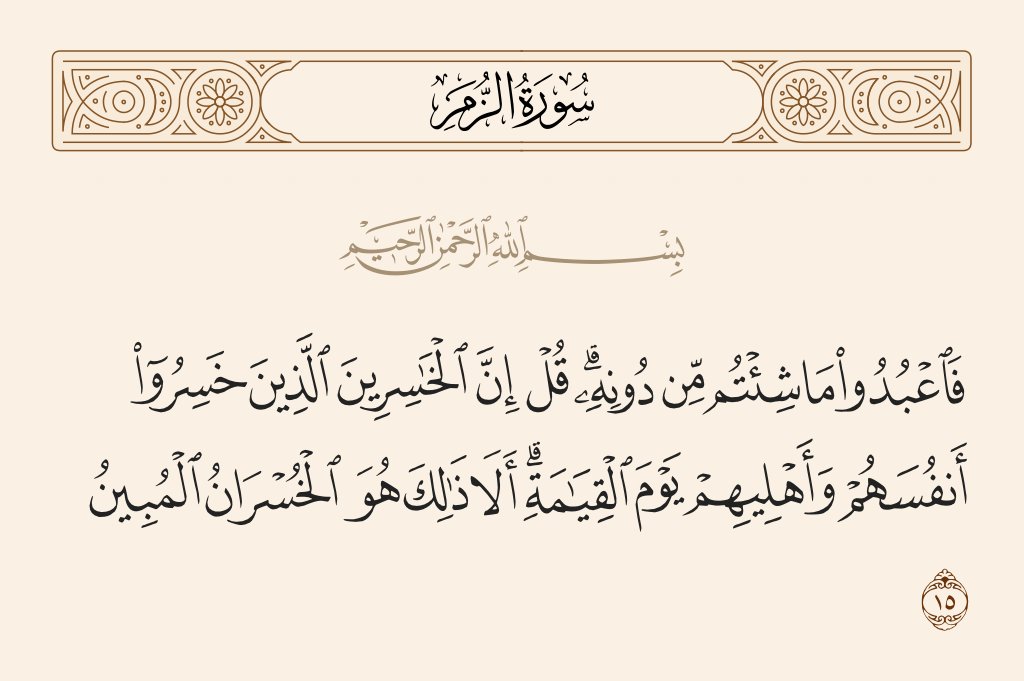 سُورَةُ الزُّمَرِ
بِسْمِ ٱللَّهِ ٱلرَّحْمَٰنِ ٱلرَّحِيمِ
فَٱعْبُدُوا۟ مَا شِئْتُم مِّن دُونِهِۦ ۗ قُلْ إِنَّ ٱلْخَٰسِرِينَ ٱلَّذِينَ خَسِرُوٓا۟
أَنفُسَهُمْ وَأَهْلِيهِمْ يَوْمَ ٱلْقِيَٰمَةِ ۗ أَلَا ذَٰلِكَ هُوَ ٱلْخُسْرَانُ ٱلْمُبِينُ
١٥